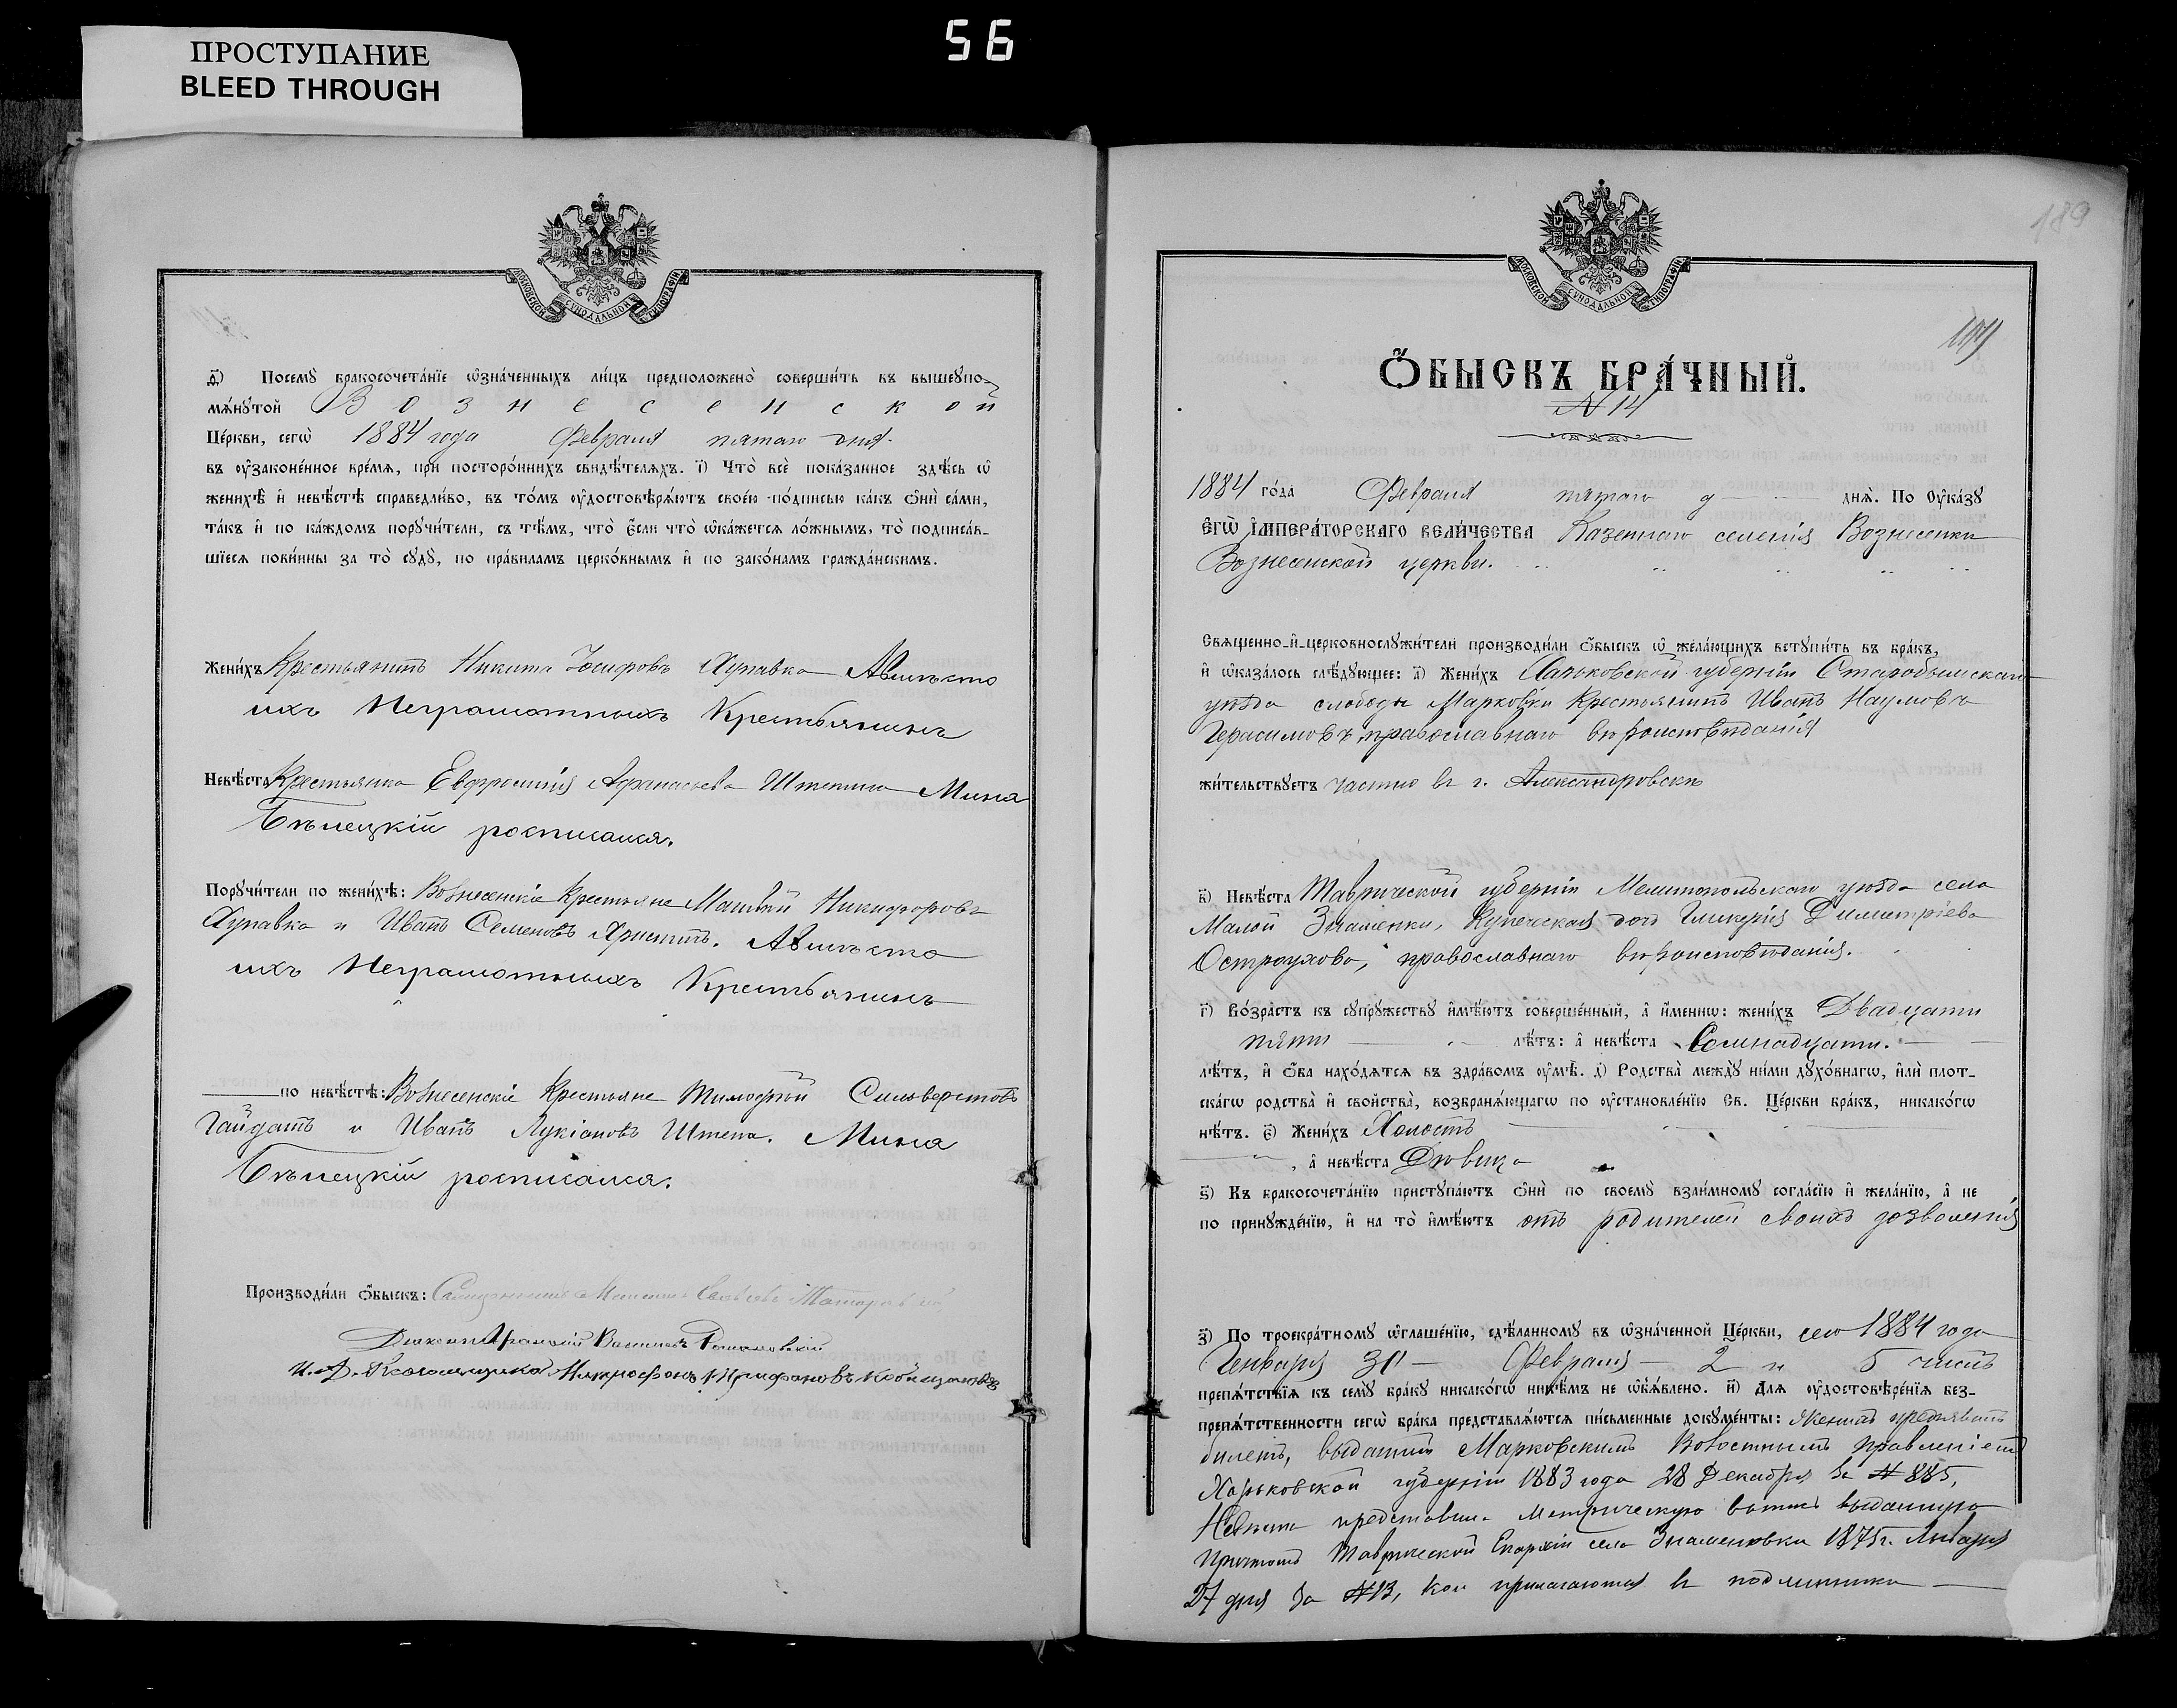 ПРОСТУПАНИЕ
BLEED THROUGH
56
МОСКОВСКОЙ СѴНОДАЛЬНОЙ ТИПОГРАФІИ
Посемꙋ̀ бракосочета́нїе ѡ҆зна́ченныхъ ли́цъ предположено̀ соверши́ть въ вышеꙋпо-
мѧ́нꙋтой Вознесенской
Це́ркви, сегѡ̀ 1884 года Февраля пятаго дня.
въ ᲂу҆законе́нное вре́мѧ, при посторо́ннихъ свидѣ́телѧхъ. і҃) Что̀ всѐ пока́занное здѣ́сь ѡ҆
женихѣ̀ и҆ невѣ́стѣ справедли́во, въ то́мъ ᲂу҆достовѣрѧ́ютъ свое́ю по́дписью ка́къ ѻ҆нѝ са́ми,
та́къ и҆ по ка́ждомъ порꙋчи́тели, съ тѣ́мъ, что̀ є҆́сли что̀ ѡ҆ка́жетсѧ ло́жнымъ, то̀ подписа́в-
шїесѧ пови́нны за то̀ сꙋдꙋ̀, по пра́виламъ церко́внымъ и҆ по зако́намъ гражда́нскимъ.
Жени́хъ Крестьянинъ Никита Іосифовъ Лупавка Авмѣсто
ихъ Неграмотныхъ Крестьянинъ
Невѣ́ста Крестьянка Евфросинія Афанасьева Штепина Мина
Бѣлецкій росписался.
Порꙋчи́тели по женихѣ̀: Вознесенскіе Крестьяне Матвѣй Никифоровъ
Лупавка и Иванъ Семеновъ Авмѣсто
ихъ Неграмотныхъ Крестьянинъ
по невѣ́стѣ: Вознесенскіе Крестьяне Тимофѣй Сильверстовъ
Гайданъ и Иванъ Лукіановъ Штепа. Мина
Бѣлецкій росписался.
Производи́ли ѻ҆́быскъ: Священникъ
Діаконъ Василій Романовскій
И. д. Псаломщика Митрофанъ
189
МОСКОВСКОЙ СѴНОДАЛЬНОЙ ТИПОГРАФІИ
Ѻ҆́БЫСКЪ БРА́ЧНЫЙ.
№ 14
1884 го́да Февраля пятаго д днѧ̀. По Оу҆ка́зꙋ
Є҆ГѠ̀ И҆МПЕРА́ТОРСКАГО ВЕЛИ́ЧЕСТВА Казеннаго селенія Вознесенки
Вознесенской церкви.
Свѧщенно-и҆-церковнослꙋжи́тели производи́ли ѻ҆́быскъ ѡ҆ жела́ющихъ встꙋпи́ть въ бра́къ,
и҆ ѡ҆каза́лось слѣ́дꙋющее: а҃) Жени́хъ Харьковской губерніи Старобѣльскаго
уѣзда слободы Марковки Крестьянинъ Иванъ Наумовъ
Герасимовъ, православнаго вѣроисповѣданія
жи́тельствꙋетъ частію въ г. Александровскѣ
в҃) Невѣ́ста Таврической губерніи Мелитопольскаго уѣзда села
Малой Знаменки, Купеческая дочь Гликерія Димитріева
Остроухова, православнаго вѣроисповѣданія.
г҃) Во́зрастъ къ сꙋпрꙋ́жествꙋ и҆мѣ́ютъ соверше́нный, а҆ и҆́менно: жени́хъ Двадцати
пяти лѣ́тъ: а҆ невѣ́ста Семнадцати.
лѣ́тъ, и҆ ѻ҆́ба нахо́дѧтсѧ въ здра́вомъ ᲂу҆мѣ̀. д҃) Родства̀ междꙋ̀ ни́ми дꙋхо́внагѡ, и҆лѝ плот-
ска́гѡ родства̀ и҆ сво́йства, возбранѧ́ющагѡ по ᲂу҆становле́нїю Св. Це́ркви бра́къ, никако́гѡ
нѣ́тъ. є҃) Жени́хъ Холостъ
, а҆ невѣ́ста Дѣвица
ѕ҃) Къ бракосочета́нїю пристꙋпа́ютъ ѻ҆нѝ по своемꙋ̀ взаи́мномꙋ согла́сїю и҆ жела́нїю, а҆ не
по принꙋжде́нїю, и҆ на то̀ и҆мѣ́ютъ отъ родителей своихъ дозволенія
з҃) По троекра́тномꙋ ѡ҆глаше́нїю, сдѣ́ланномꙋ въ ѡ҆зна́ченной Це́ркви, сего 1884 года
Генваря 30 — Февраля — 2 и 5 числъ
препѧ́тствїѧ къ семꙋ̀ бра́кꙋ никако́гѡ никѣ́мъ не ѡ҆б̾ѧ́влено. и҃) Длѧ ᲂу҆достовѣре́нїѧ без-
препѧ́тственности сегѡ̀ бра́ка представлѧ́ютсѧ пи́сьменные докꙋме́нты: Женихъ предъявилъ
билетъ, выданный Марковскимъ Волостнымъ правленіемъ
Харьковской губерніи 1883 года 28 Декабря за № 885,
Невѣста представила Метрическую выпись выданную
причтомъ Таврической Епархіи села Знаменовки 1875 г. Января
27 дня за № 13, кои прилагаются въ подлинникѣ